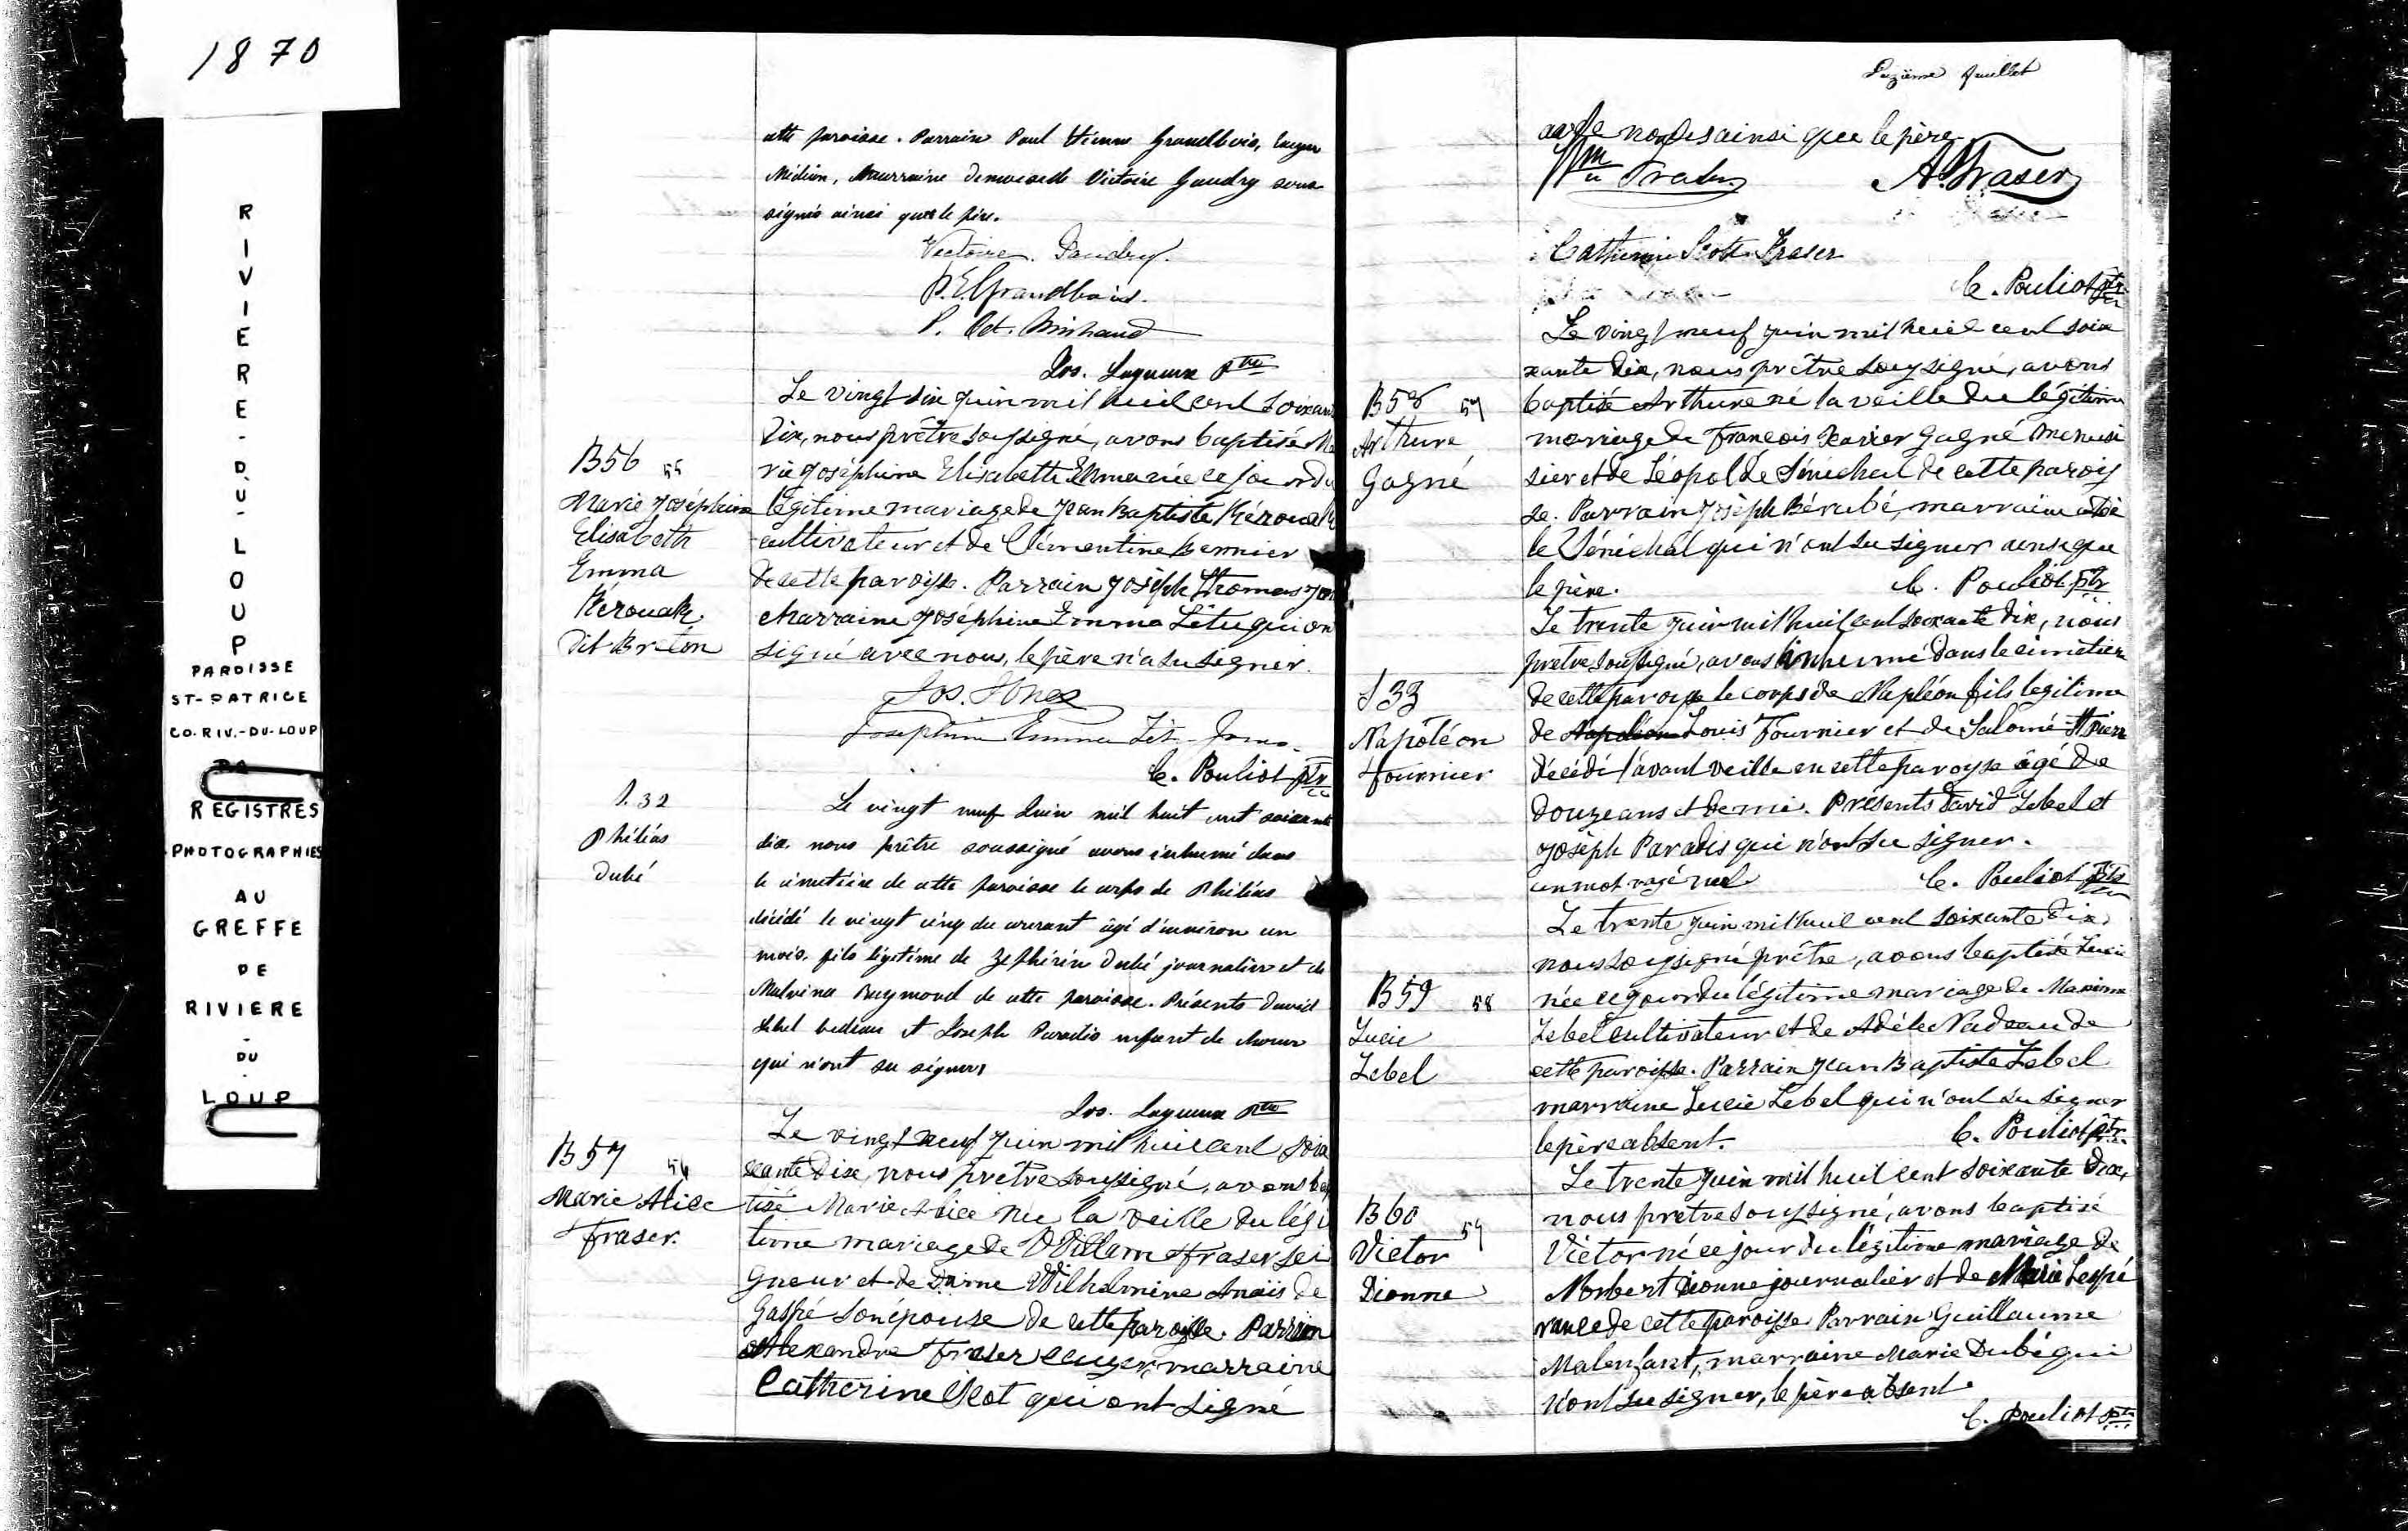 1870
RIVIERE-DU-LOUP
PAROISSE
ST-PATRICE
CO. RIV.-DU-LOUP
REGISTRES
PHOTOGRAPHIES
AU
GREFFE
DE
RIVIERE
-
DU
-
LOUP
cette paroisse. Parrain Paul Etienne Grandbois, Ecuyer
Médecin, Marraine demoiselle Victoire Gaudry sous
signés ainsi que le père.
Victoire Gaudry.
P. E. Grandbois.
P. Oct. Michaud
Jos. Lagueux Ptre
B56 55
Marie Joséphine
Elisabeth
Emma
Kerouak
Dit Breton
Le vingt six juin mil huit cent soixant
Dix, nous prêtre soussigné, avons baptisé Ma
rie Joséphine Elisabeth Emma née ce jour du
légitime mariage de Jean Baptiste Kérouak
cultivateur et de Clémentine Bernier
de cette paroisse. Parrain Joseph Thomas Jon
Marraine Joséphine Emma Têtu qui on
signé avec nous, le père n'a su signer.
Jos. Jones
Josephine Emma Jones
C. Pouliot ptr
S. 32
Philéas
Dubé
Le vingt neuf Juin mil huit cent soixante
dix, nous prêtre soussigné avons inhumé dans
le cimetière de cette paroisse le corps de Philéas
décédé le vingt cinq du courant âgé d'environ un
mois, fils légitime de Zéphirin Dubé journalier et de
Malvina Raymond de cette paroisse. Présents David
Lebel bedeau et Joseph Paradis enfant de choeur
qui n'ont su signer
Jos. Lagueux Ptre
B57 56
Marie Alice
Fraser.
Le vingt neuf Juin mil huit cent soix
xante Dix, nous prêtre soussigné, avons bap
tisé Marie Alice née la veille du légi
time mariage de William Fraser sei
gneur et de Dame Wilhelmine Anaïs de
Gaspé son épouse de cette paroisse. Parrain
Alexandre Fraser ecuyer, marraine
Catherine Scot qui ont signé
Onzième feuillet
avec nous ainsi que le père
Wm Fraser A. Fraser
Catherine Scott Fraser
C. Pouliot ptr
B58 57
Arthure
Gagné
Le vingt neuf juin mil huit cent soix
xante dix, nous prêtre soussigné, avons
baptisé Arthure né la veille du légitime
mariage de François Xavier Gagné menuisi
sier et de Léopolde Sénéchal de cette parois
se. Parrain Joseph Bérubé, marraine Adè
le Sénéchal qui n'ont su signer ainsi que
le père. C. Pouliot ptr
S33
Napoléon
Fournier
Le trente juin mil huit cent soixante dix, nous
prêtre soussigné, avons inhumé dans le cimetière
de cette paroisse le corps de Napléon fils legitime
de Napoléon Louis Fournier et de Salomé St Pierre
décédé l'avant veille en cette paroisse âgé de
douze ans et demi. Présents David Lebel et
Joseph Paradis qui n'ont su signer.
un mot rayé nul C. Pouliot ptr
B59 58
Lucie
Lebel
Le trente juin mil huit cent soixante dix
nous soussigné prêtre, avons baptisé Lucie
née ce jour du légitime mariage de Maxime
Lebel cultivateur et de Adèle Nadeau de
cette paroisse. Parrain Jean Baptiste Lebel
marraine Lucie Lebel qui n'ont su signer
le père absent. C. Pouliot ptr
B60 59
Victor
Dionne
Le trente juin mil huit cent soixante dix,
nous prêtre soussigné, avons baptisé
Victor né ce jour du légitime mariage de
Norbert Dionne journalier et de Marie Lespé
rance de cette paroisse Parrain Guillaume
Malenfant, marraine Marie Dubé qui
n'ont su signer, le père absent
C. Pouliot ptr